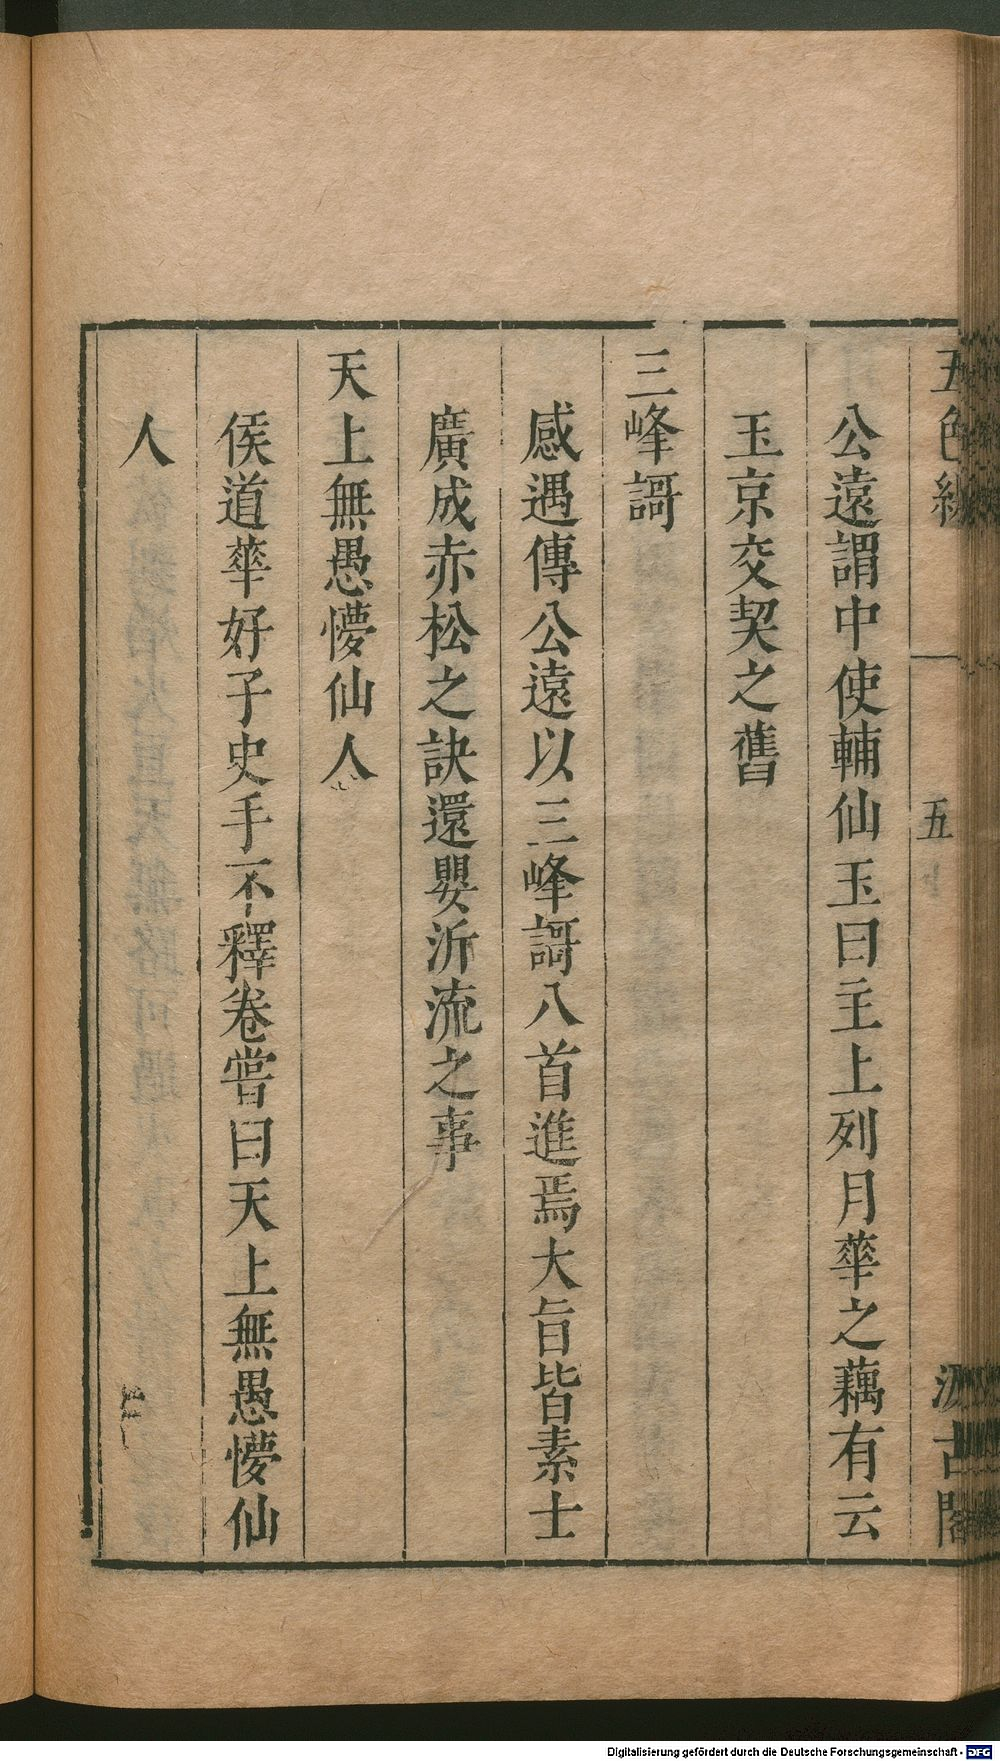 五色線
五
汲古閣
公遠謂中使輔仙玉曰主上列月華之藕有云
玉京交契之舊
三峰謌
感遇傳公遠以三峰謌八首進焉大旨皆素士
廣成赤松之訣還嬰泝流之事
天上無愚懜仙人
侯道華好子史手不釋卷甞曰天上無愚懜仙
人
Digitalisierung gefördert durch die Deutsche Forschungsgemeinschaft - DFG